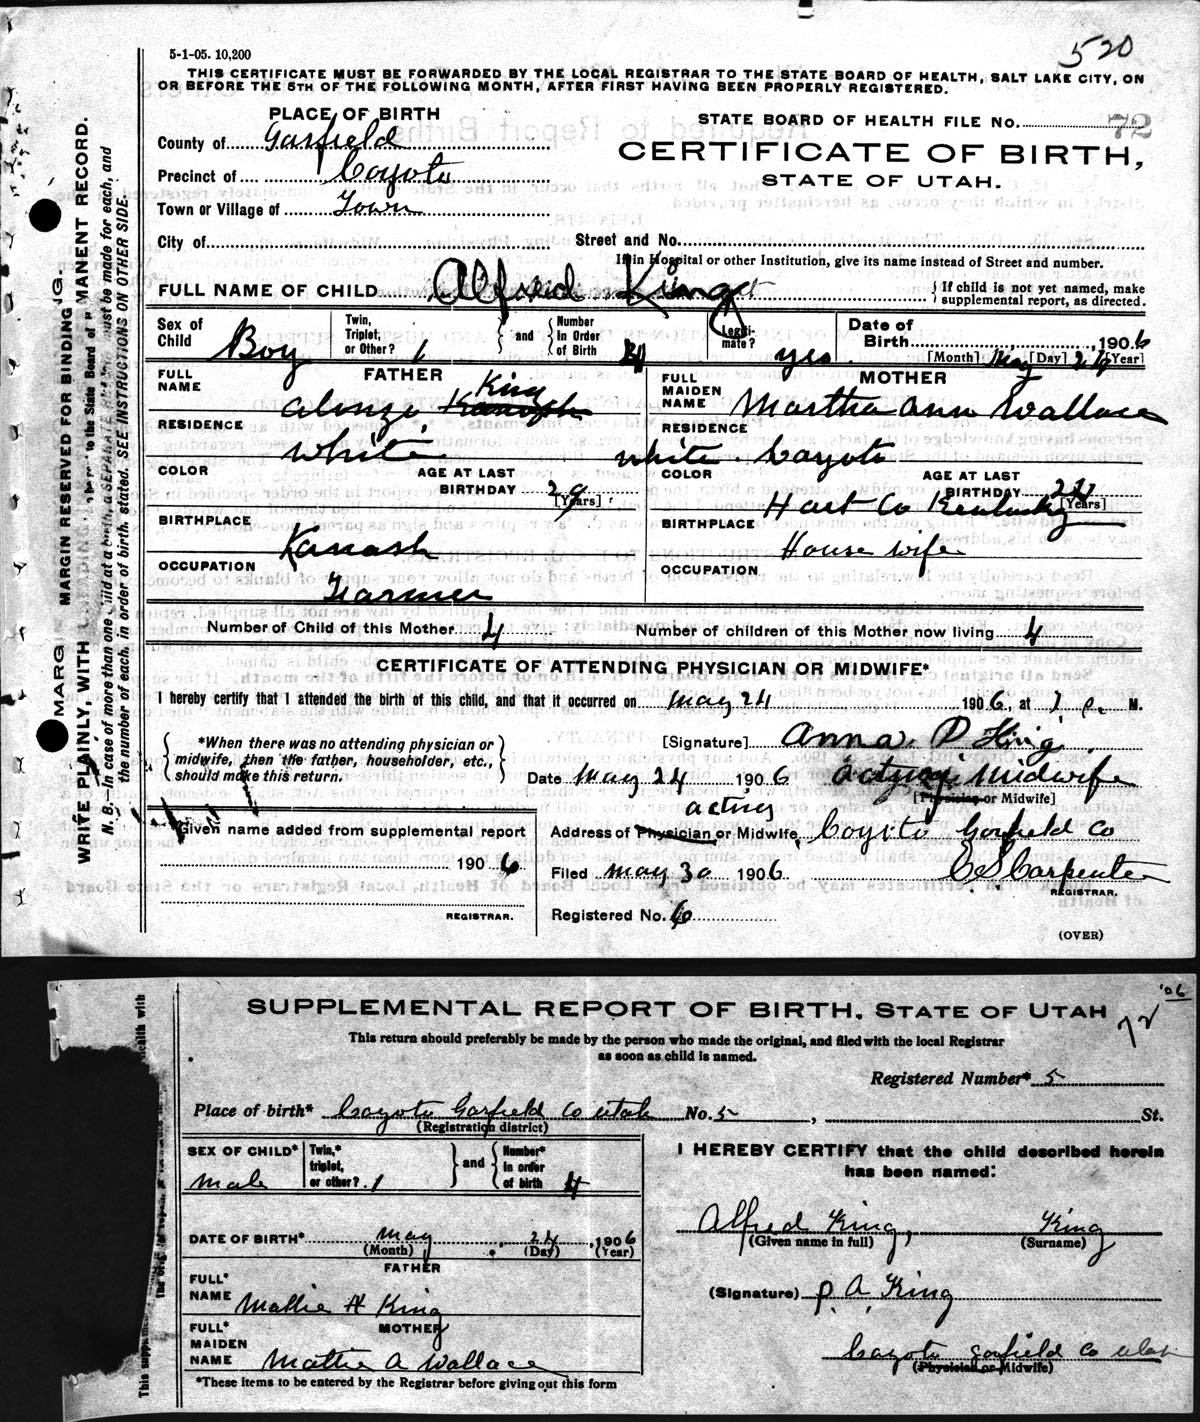 520
5-1-05. 10,200
THIS CERTIFICATE MUST BE FORWARDED BY THE LOCAL REGISTRAR TO THE STATE BOARD OF HEALTH, SALT LAKE CITY, ON
OR BEFORE THE 5TH OF THE FOLLOWING MONTH, AFTER FIRST HAVING BEEN PROPERLY REGISTERED.
PLACE OF BIRTH
STATE BOARD OF HEALTH FILE No. 72
County of Garfield
CERTIFICATE OF BIRTH,
Precinct of Coyoto
STATE OF UTAH.
Town or Village of Town
City of
Street and No.
If in Hospital or other Institution, give its name instead of Street and number.
FULL NAME OF CHILD Alfred King
If child is not yet named, make
supplemental report, as directed.
Sex of Child Boy
Twin, Triplet, or Other? 1
and
Number in Order of Birth 4
Legitimate? yes
Date of Birth May 24 1906
[Month] [Day] [Year]
FATHER
FULL NAME Alonzo King Kanosh
RESIDENCE
white
COLOR
AGE AT LAST BIRTHDAY 29
[Years]
BIRTHPLACE
Kanash
OCCUPATION
Farmer
MOTHER
FULL MAIDEN NAME Martha Ann Wallace
RESIDENCE
white. Coyoto
COLOR
AGE AT LAST BIRTHDAY 24
[Years]
Hart Co Kentucky
BIRTHPLACE
House wife
OCCUPATION
Number of Child of this Mother 4
Number of children of this Mother now living 4
CERTIFICATE OF ATTENDING PHYSICIAN OR MIDWIFE*
I hereby certify that I attended the birth of this child, and that it occurred on May 24 1906, at 1 P. M.
*When there was no attending physician or
midwife, then the father, householder, etc.,
should make this return.
[Signature] Anna P King
Date May 24 1906 acting Midwife
[Physician or Midwife]
acting
Address of Physician or Midwife Coyoto Garfield Co
Given name added from supplemental report
1906
REGISTRAR.
Filed May 30 1906. C S Carpenter
REGISTRAR.
Registered No. 6
(OVER)
MARGIN RESERVED FOR BINDING.
WRITE PLAINLY, WITH
MANENT RECORD.
N. B.—In case of more than one child at a birth, a SEPARATE must be made for each, and
the number of each, in order of birth, stated. SEE INSTRUCTIONS ON OTHER SIDE.
'06
72
SUPPLEMENTAL REPORT OF BIRTH, STATE OF UTAH
This return should preferably be made by the person who made the original, and filed with the local Registrar
as soon as child is named.
Registered Number* 5
Place of birth* Coyoto Garfield Co Utah No. 5, St.
(Registration district)
SEX OF CHILD* Male
Twin,* triplet, or other? 1
and
Number* in order of birth 4
I HEREBY CERTIFY that the child described herein
has been named:
DATE OF BIRTH* May, 24, 1906
(Month) (Day) (Year)
Alfred King, King
(Given name in full) (Surname)
FATHER
FULL* NAME Mattie A King
(Signature) P A King
MOTHER
FULL* MAIDEN NAME Mattie A Wallace
Coyoto Garfield Co Utah
(Physician or Midwife)
*These items to be entered by the Registrar before giving out this form